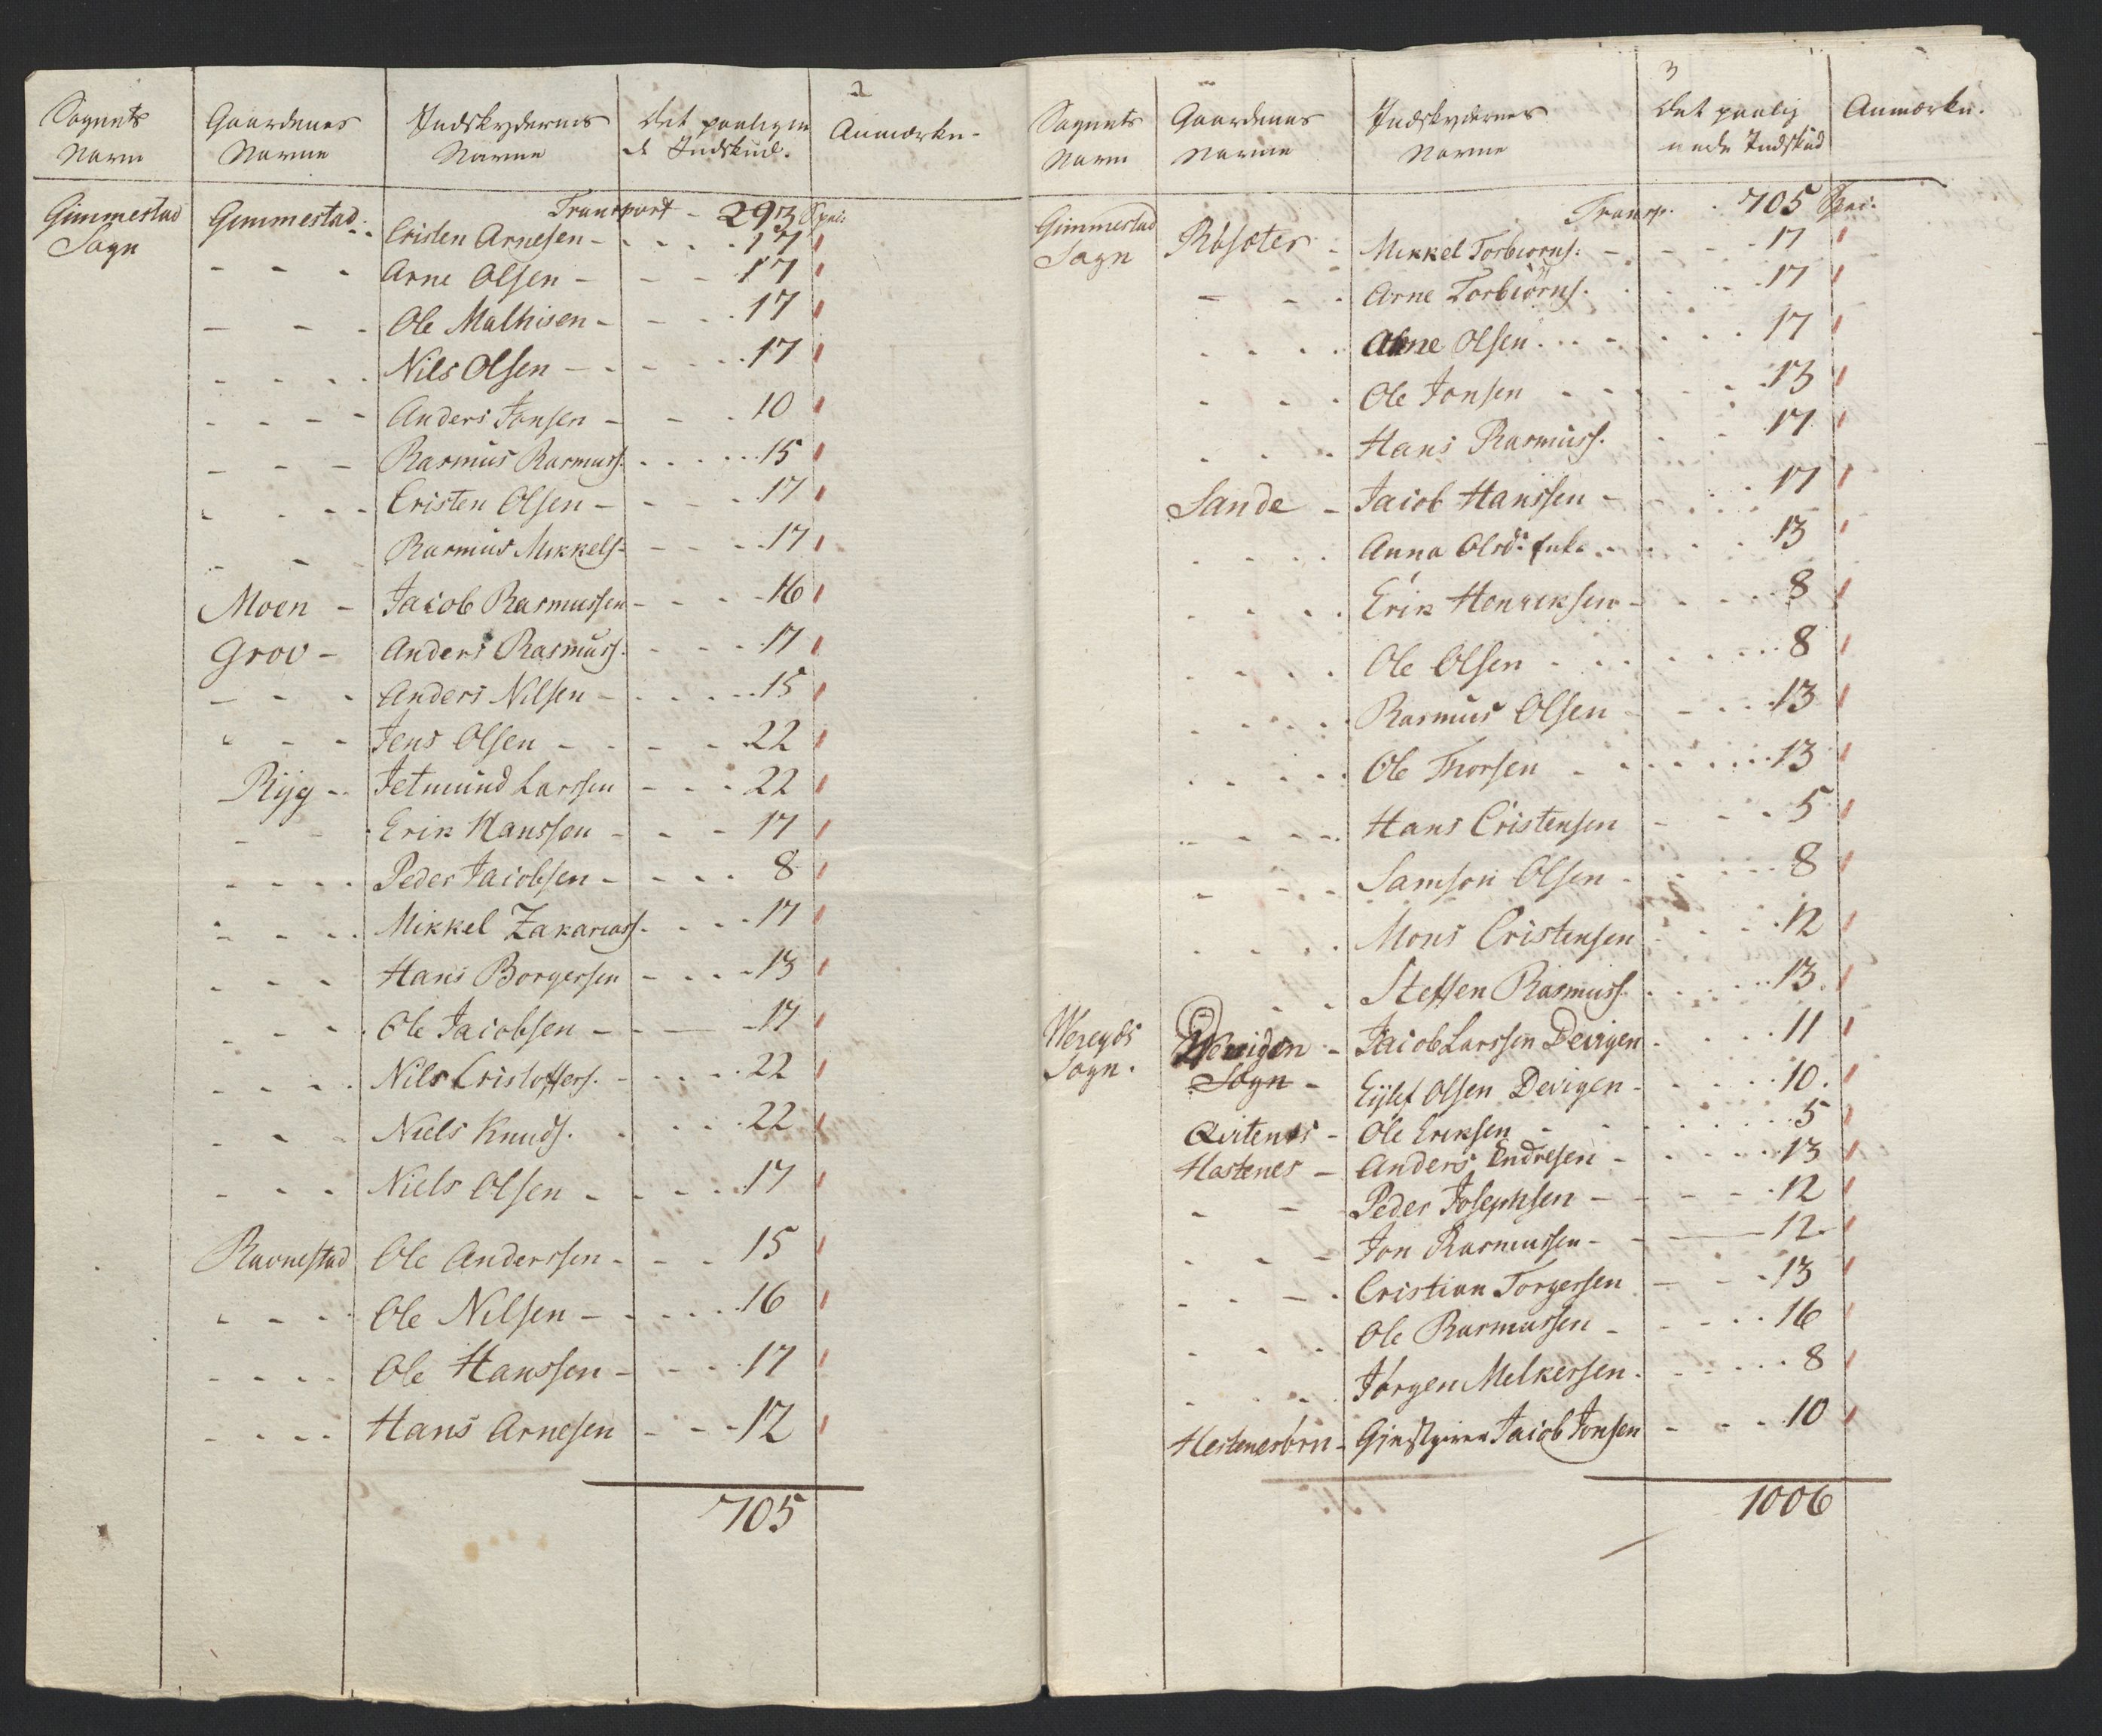 2
Sognets Navn | Gaardenes Navne | Indskydernes Navne | det paaligende Indskud. | Anmærkn.
Transport - 293 Spec.
Gimmestad Sogn | Gimmestad | Cristen Arnesen - 17
Arne Olsen - 17
Ole Mathisen - 17
Nils Olsen - 17
Anders Jonsen - 10
Rasmus Rasmuss. 15
Cristen Olsen - 17
Rasmus Mikkels. 17
Moen - Jacob Rasmussen - 16
Grov - Anders Rasmuss. 17
Anders Nilsen - 15
Jens Olsen - 22
Ryg - Jetmund Larssen - 22
Erik Hanssen - 17
Peder Jacobsen - 8
Mikkel Zakariass. 17
Hans Borgersen - 13
Ole Jacobsen - 17
Nils Cristoffers. 22
Niels Knuds. 22
Niels Olsen - 17
Ravnestad Ole Anderssen - 15
Ole Nilsen - 16
Ole Hanssen - 17
Hans Arnesen - 12
705
3
Sognets Navn | Gaardenes Navne | Indskydernes Navne | Det paaligende Indskud | Anmærkn.
Transp. 705 Spec.
Gimmestad Sogn | Røsæter - Mikkel Torbiørns. 17
Arne Torbiørns. 17
Arne Olsen 17
Ole Jonsen 13
Hans Rasmuss. 17
Sande - Jacob Hanssen - 17
Anna Olsd. Enke 13
Erik Henriksen - 8
Ole Olsen 8
Rasmus Olsen 13
Ole Thorsen 13
Hans Cristensen 5
Samson Olsen 8
Mons Cristensen 12
Steffen Rasmuss. 13
Wereyds Sogn. | Devigen - Jacob Larssen Devigen 11
Sogn - Eylef Olsen Devigen - 10.
Qvitenes - Ole Eriksen 5
Hestenes - Anders Endresen - 13
Peder Josephsen - 12
Jon Rasmussen - 12
Cristian Torgersen 13
Ole Rasmussen 16
Jørgen Melkersen. 8
Hestenesøen - Giestgiver Jacob Jonsen 10
1006